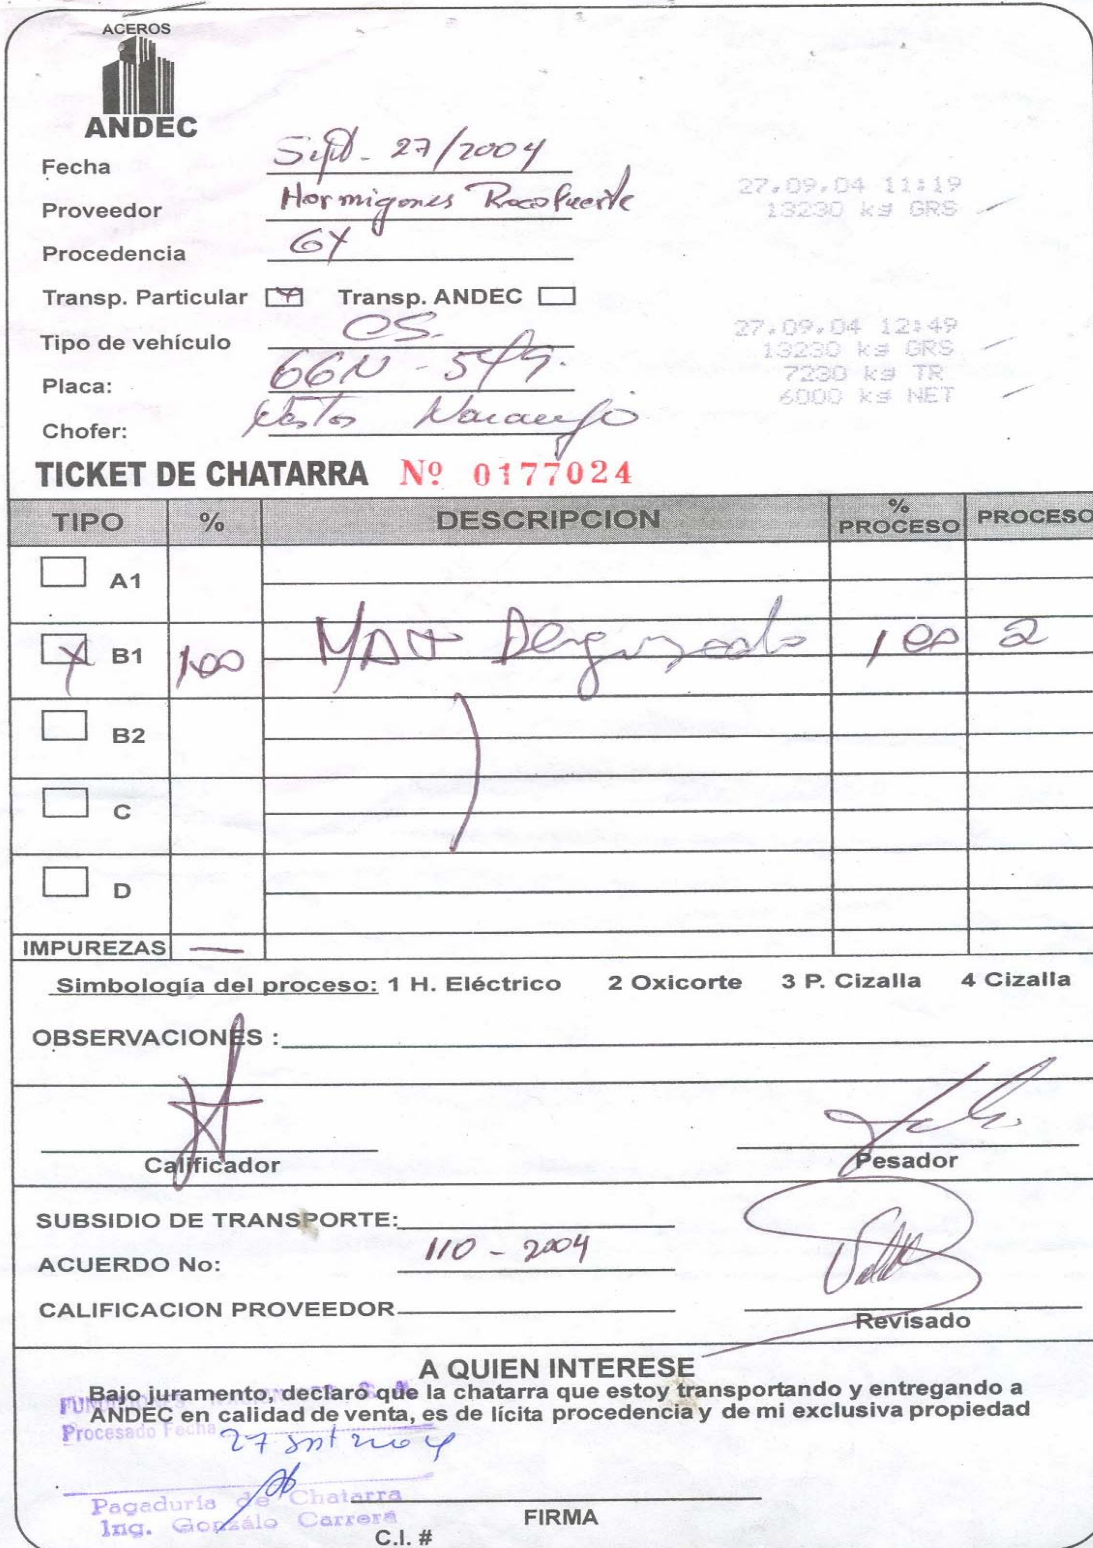 ACEROS
ANDEC
Fecha Sept. 27/2004
Proveedor Hormigones Rocafuerte
27.09.04 11:19
13230 kg GRS
Procedencia GY
Transp. Particular Transp. ANDEC
Tipo de vehículo CS.
27.09.04 12:49
13230 kg GRS
7230 kg TR
6000 kg NET
Placa: GGN -
Chofer: Naranjo
TICKET DE CHATARRA Nº 0177024
TIPO % DESCRIPCION % PROCESO PROCESO
A1
X B1 100 Desguazado 100 2
B2
C
D
IMPUREZAS —
Simbología del proceso: 1 H. Eléctrico 2 Oxicorte 3 P. Cizalla 4 Cizalla
OBSERVACIONES :
Calificador Pesador
SUBSIDIO DE TRANSPORTE:
ACUERDO No: 110 - 2004
CALIFICACION PROVEEDOR
Revisado
A QUIEN INTERESE
Bajo juramento, declaro que la chatarra que estoy transportando y entregando a
ANDEC en calidad de venta, es de lícita procedencia y de mi exclusiva propiedad
Procesado Fecha 27 Sept 2004
Pagaduría de Chatarra
Ing. Gonzálo Carrera
FIRMA
C.I. #